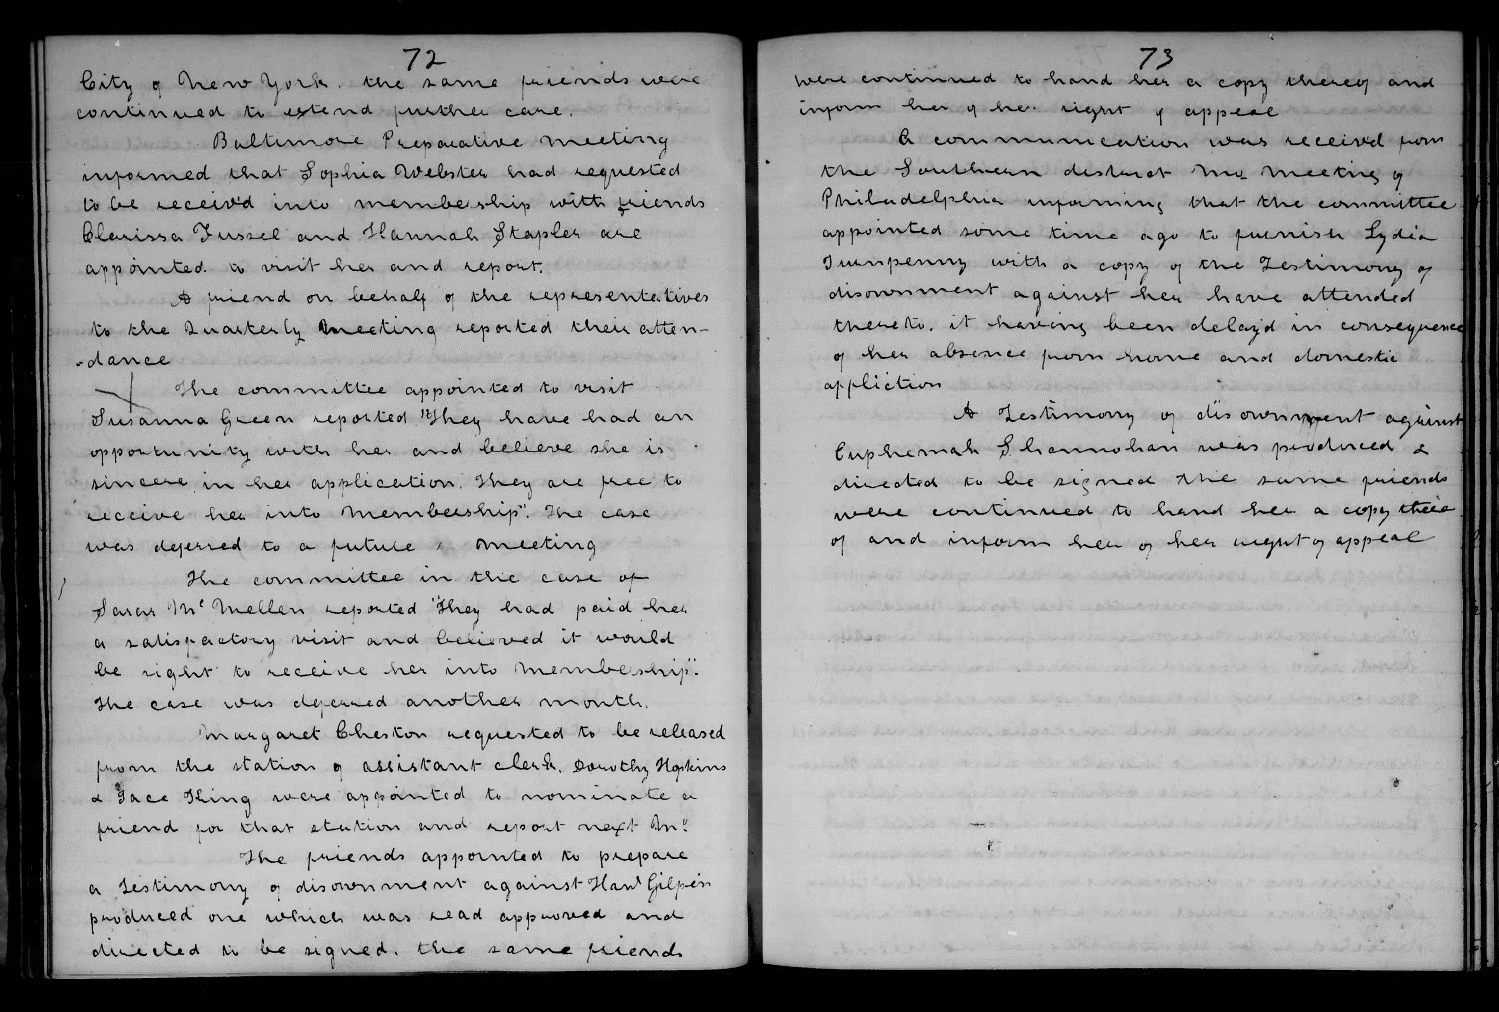 72
City of New York. the same friends were
continued to extend further care.
Baltimore Preparative meeting
informed that Sophia Webster had requested
to be receiv'd into membership with friends
Clarissa Fussel and Hannah Stapler are
appointed to visit her and report.
A friend on behalf of the representatives
to the Quarterly Meeting reported their atten-
-dance
The committee appointed to visit
Susanna Green reported "They have had an
opportunity with her and believe she is
sincere in her application. They are free to
receive her into membership". The case
was deferred to a future meeting
The committee in the case of
Sarah McMellen reported "They had paid her
a satisfactory visit and believed it would
be right to receive her into membership".
The case was deferred another month.
Margaret Cheston requested to be released
from the station of assistant clerk. Dorothy Hopkins
& Tace King were appointed to nominate a
friend for that station and report next Mo
The friends appointed to prepare
a Testimony of disownment against Hanh Gilpin
produced one which was read approved and
directed to be signed. the same friends
73
were continued to hand her a copy thereof and
inform her of her right of appeal
A communication was received from
the Southern district Mo meeting of
Philadelphia informing that the committee
appointed some time ago to furnish Lydia
Twinpenny with a copy of the Testimony of
disownment against her have attended
thereto. it having been delay'd in consequence
of her absence from home and domestic
affliction
A Testimony of disownment against
Euphemah Shannohan was produced &
directed to be signed the same friends
were continued to hand her a copy there
of and inform her of her right of appeal